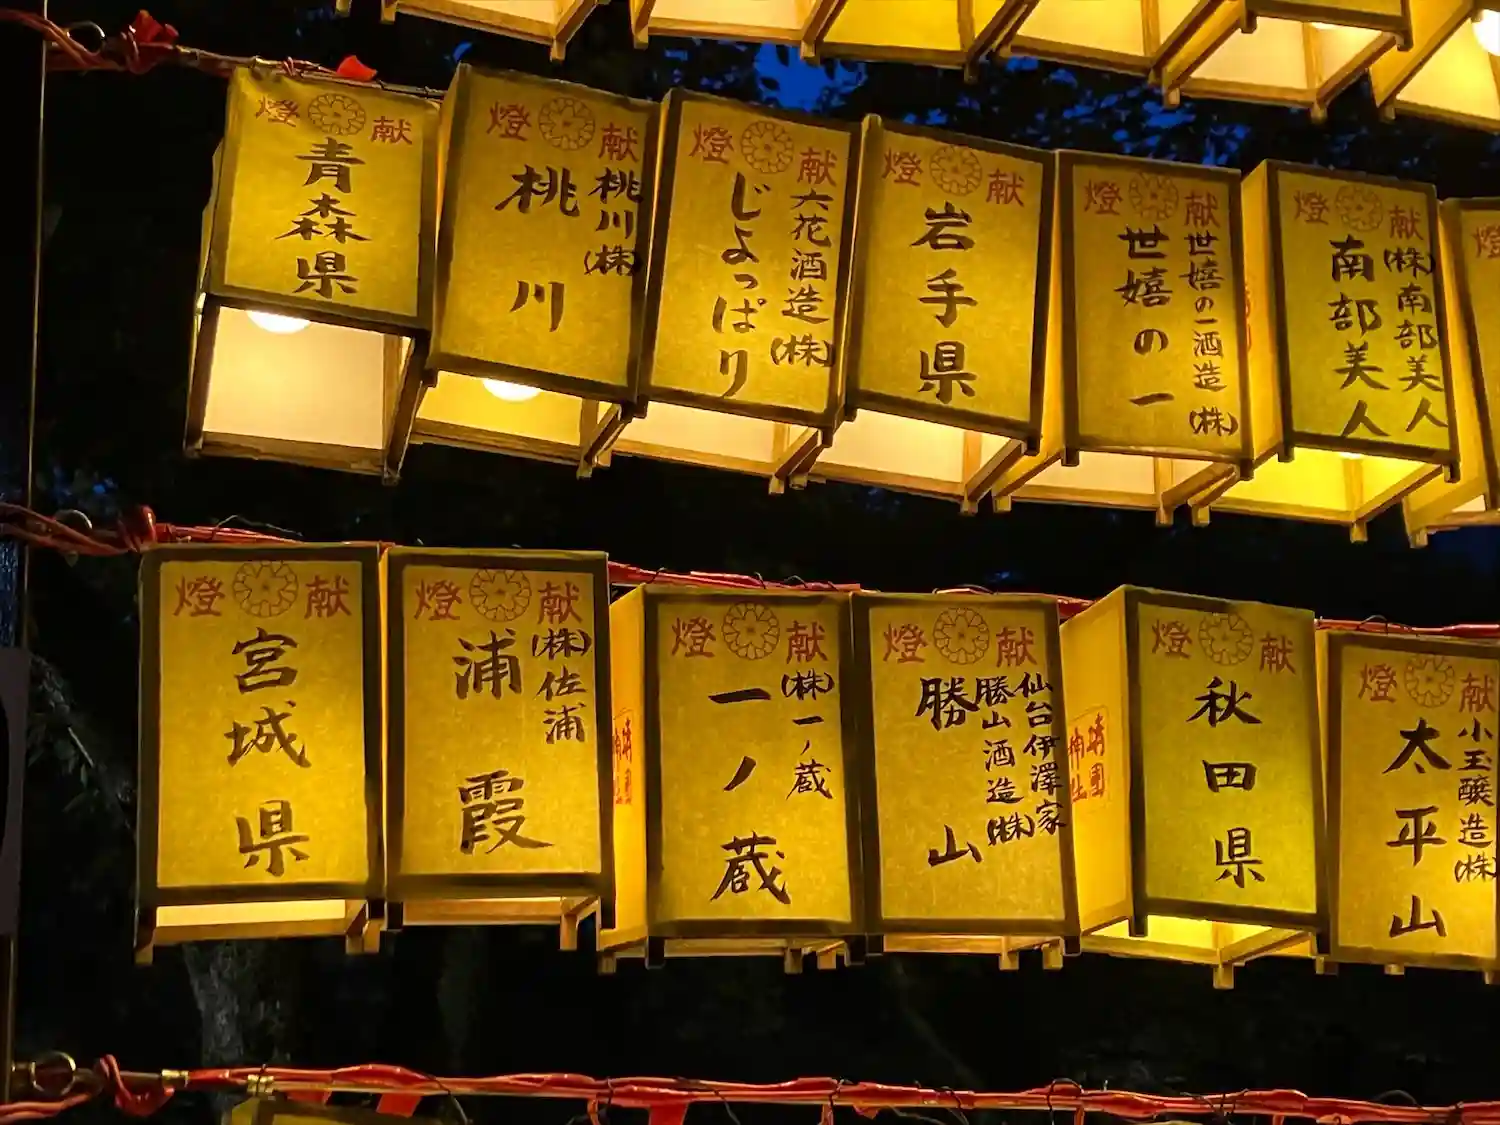 献燈
青森県
献燈
桃川(株)
桃川
献燈
六花酒造(株)
じょっぱり
献燈
岩手県
献燈
世嬉の一酒造(株)
世嬉の一
献燈
(株)南部美人
南部美人
燈
献燈
宮城県
献燈
(株)佐浦
浦霞
献燈
(株)一ノ蔵
一ノ蔵
献燈
仙台伊澤家
勝山酒造(株)
勝山
献燈
秋田県
献燈
小玉醸造(株)
太平山